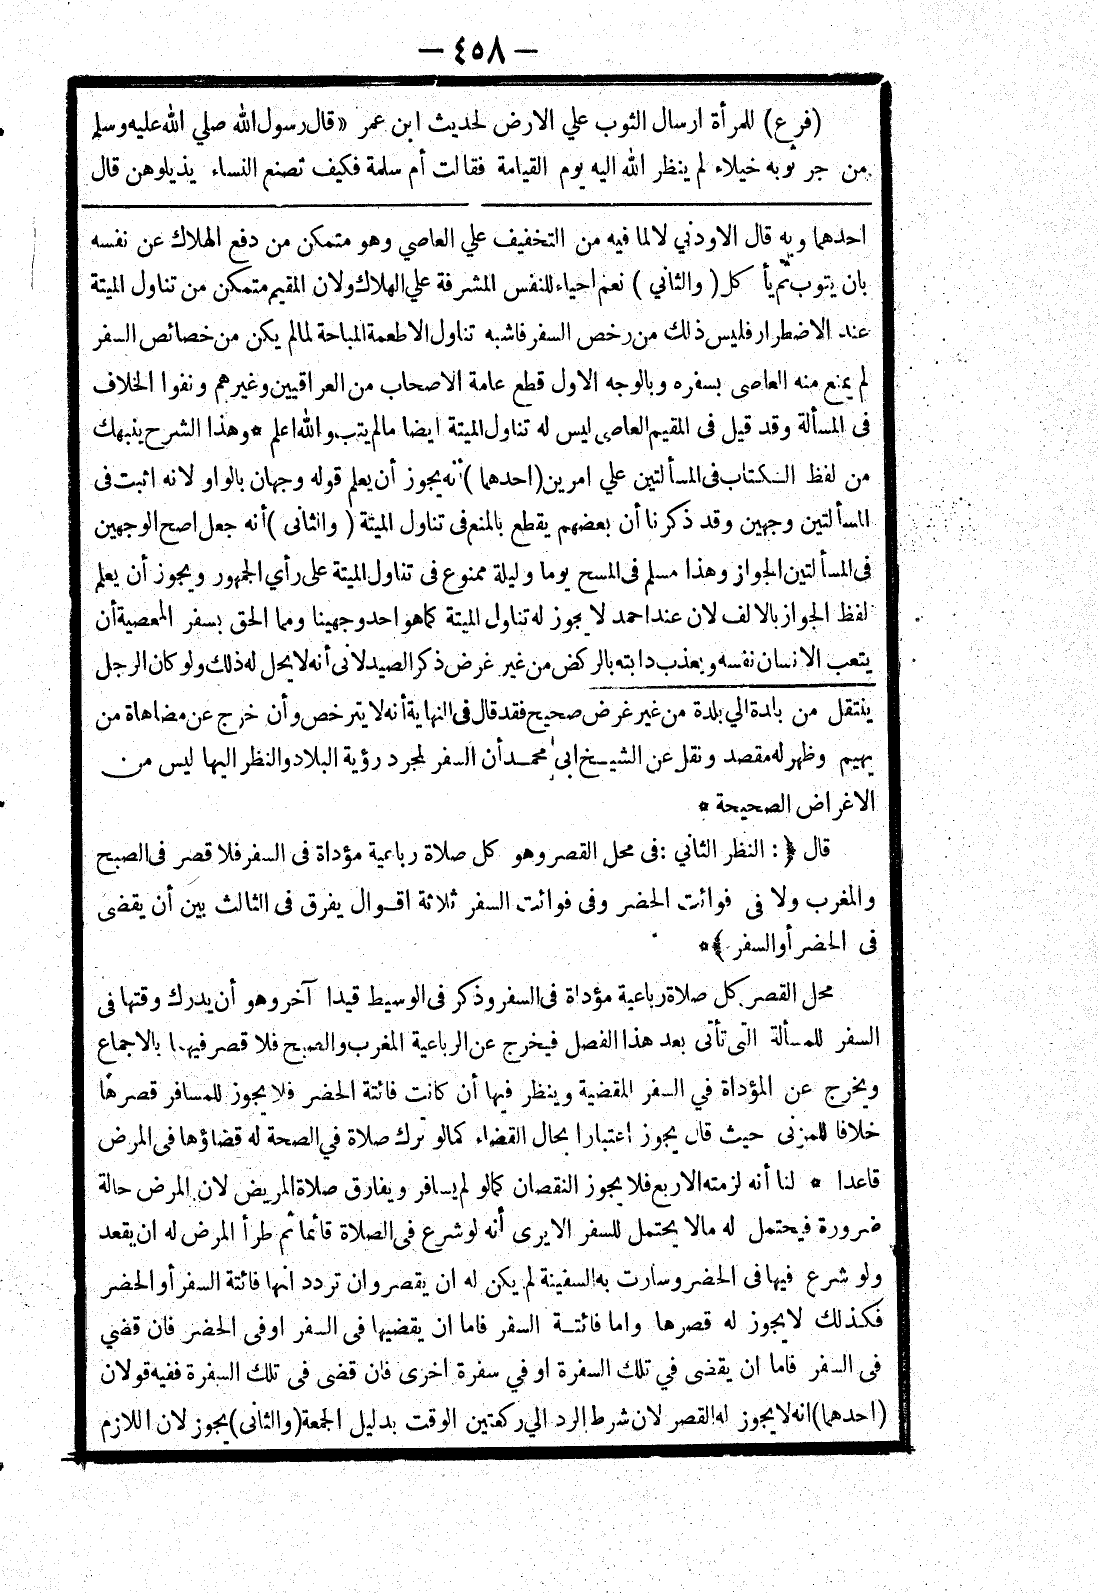 — ٤٥٨ —
(فرع) للمرأة ارسال الثوب علي الارض لحديث ابن عمر « قال رسول الله صلي الله عليه وسلم
من جر ثوبه خيلاء لم ينظر الله اليه يوم القيامة فقالت أم سلمة فكيف تصنع النساء بذيولهن قال
احدهما وبه قال الاودني لا لما فيه من التخفيف علي العاصي وهو متمكن من دفع الهلاك عن نفسه
بان يتوب ثم يأ كل ( والثاني ) نعم احياء للنفس المشرفة علي الهلاك ولان المقيم متمكن من تناول الميتة
عند الاضطرار فليس ذلك من رخص السفر فاشبه تناول الاطعمة المباحة لما لم يكن من خصائص السفر
لم يمنع منه العاصى بسفره وبالوجه الاول قطع عامة الاصحاب من العراقيين وغيرهم ونفوا الخلاف
فى المسألة وقد قيل فى المقيم العاصي ليس له تناول الميتة ايضا مالم يتب والله اعلم * وهذا الشرح ينبهك
من لفظ الكتاب فى المسألتين علي امرين (احدهما) أنه يجوز أن يعلم قوله وجهان بالواو لانه اثبت فى
المسألتين وجهين وقد ذكرنا أن بعضهم يقطع بالمنع فى تناول الميتة ( والثانى ) أنه جعل اصح الوجهين
فى المسألتين الجواز وهذا مسلم فى المسح يوما وليلة ممنوع فى تناول الميتة على رأي الجمهور ويجوز أن يعلم
لفظ الجواز بالالف لان عند احمد لا يجوز له تناول الميتة كما هو احد وجهينا ومما الحق بسفر المعصية أن
يتعب الانسان نفسه ويعذب دابته بالركض من غير غرض ذكر الصيدلانى أنه لا يحل له ذلك ولو كان الرجل
ينتقل من بلدة الي بلدة من غير غرض صحيح فقد قال فى النهاية أنه لا يترخص وأن خرج عن مضاهاة من
يهيم وظهر له مقصد ونقل عن الشيخ ابى محمد أن السفر لمجرد رؤية البلاد والنظر اليها ليس من
الاغراض الصحيحة *
قال ﴿ : النظر الثاني : فى محل القصر وهو كل صلاة رباعية مؤداة فى السفر فلا قصر فى الصبح
والمغرب ولا فى فوائت الحضر وفى فوائت السفر ثلاثة اقوال يفرق فى الثالث بين أن يقضى
فى الحضر أو السفر ﴾ *
محل القصر كل صلاة رباعية مؤداة فى السفر وذكر فى الوسيط قيدا آخر وهو أن يدرك وقتها فى
السفر للمسألة التى تأتى بعد هذا الفصل فيخرج عن الرباعية المغرب والصبح فلا قصر فيهما بالاجماع
ويخرج عن المؤداة في السفر المقضية وينظر فيها أن كانت فائتة الحضر فلا يجوز للمسافر قصرها
خلافا للمزنى حيث قال يجوز اعتبارا بحال القضاء كما لو ترك صلاة في الصحة له قضاؤها فى المرض
قاعدا * لنا أنه لزمته الاربع فلا يجوز النقصان كما لو لم يسافر ويفارق صلاة المريض لان المرض حالة
ضرورة فيحتمل له مالا يحتمل للسفر الا يرى أنه لو شرع فى الصلاة قائما ثم طرأ المرض له ان يقعد
ولو شرع فيها فى الحضر وسارت به السفينة لم يكن له ان يقصر وان تردد انها فائتة السفر أو الحضر
فكذلك لا يجوز له قصرها واما فائتة السفر فاما ان يقضيها فى السفر او فى الحضر فان قضي
فى السفر فاما ان يقضى في تلك السفرة او في سفرة اخرى فان قضى فى تلك السفرة ففيه قولان
(احدهما) انه لا يجوز له القصر لان شرط الرد الي ركعتين الوقت بدليل الجمعة (والثانى) يجوز لان اللازم